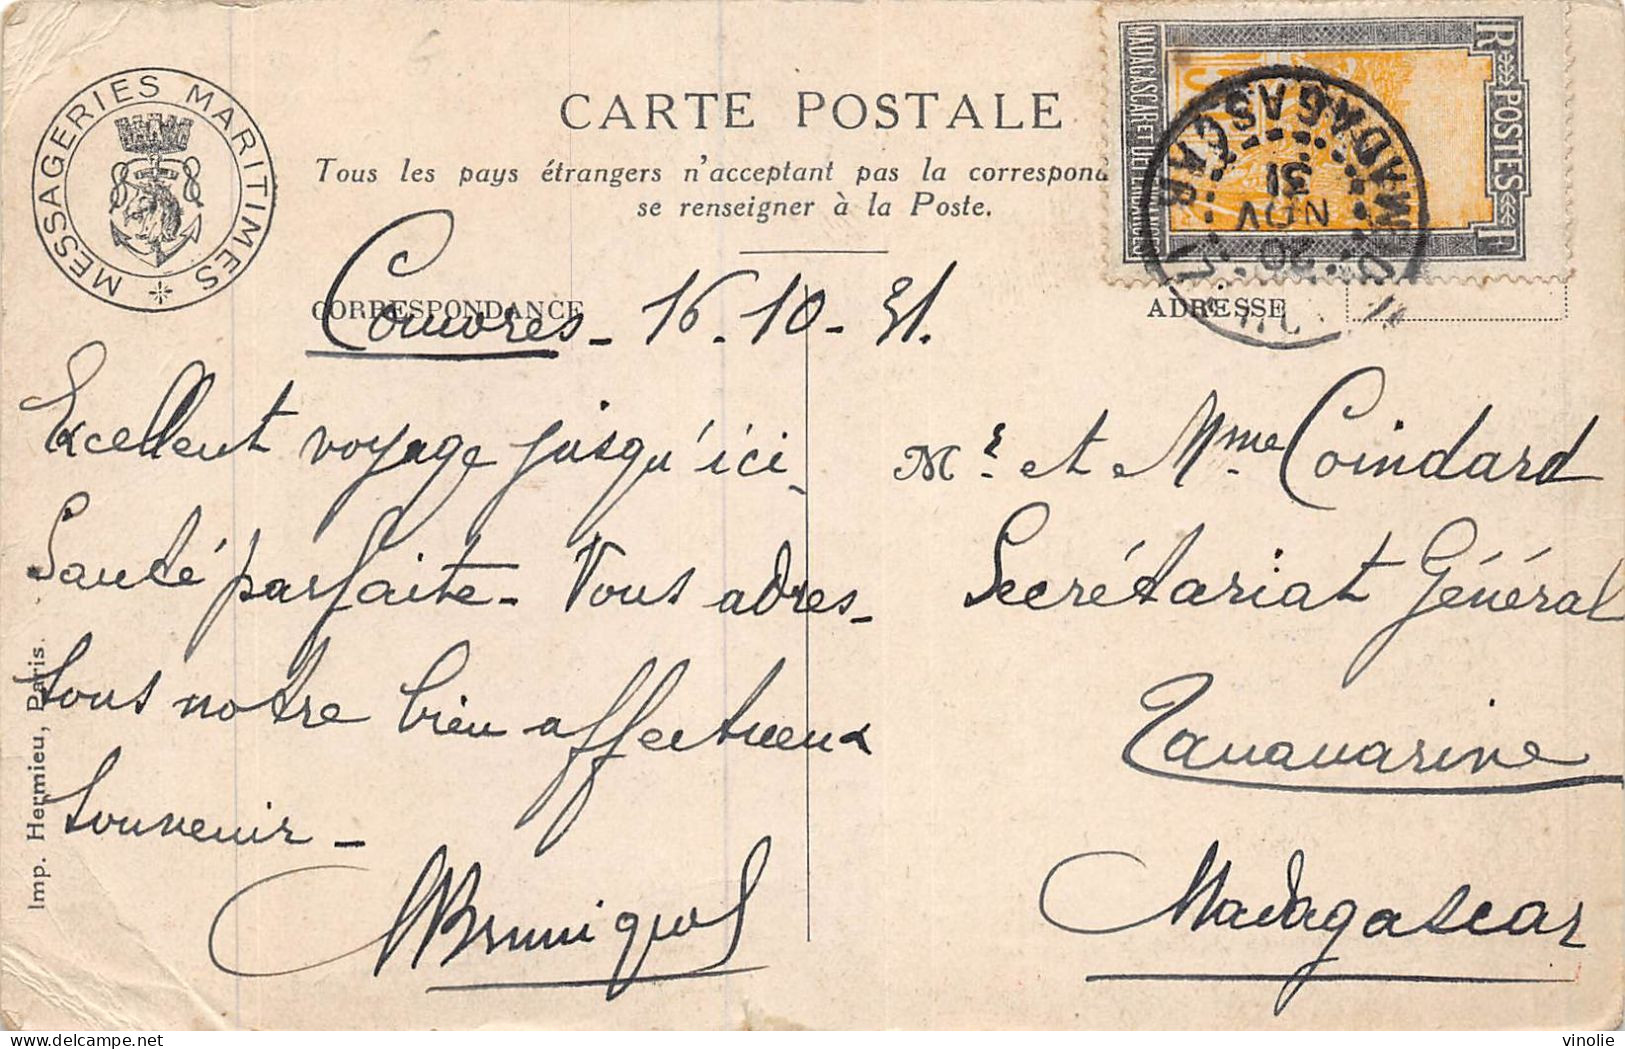 MESSAGERIES MARITIMES
CARTE POSTALE
Tous les pays étrangers n'acceptant pas la correspond
se renseigner à la Poste.
CORRESPONDANCE
Comores - 16-10-31.
Excellent voyage jusqu'ici -
Santé parfaite - Vous adres-
sons notre bien affectueux
souvenir -
Bruniquel
Imp. Hermieu, Paris.
RF POSTES
MADAGASCAR ET DÉPENDANCES
MADAGASCAR
20
NOV
31
ADRESSE
Mr et Mme Coindard
Secrétariat Général
Tananarive
Madagascar
vinolie